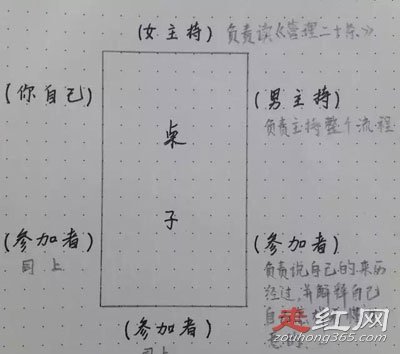 (女主持) 负责读《管理二十条》
(你自己)
(男主持)
负责主持整个流程
桌
子
(参加者)
同上
(参加者)
负责说自己的来历
经过,并解释自己
(参加者)
同上
走红网
zouhong365.com